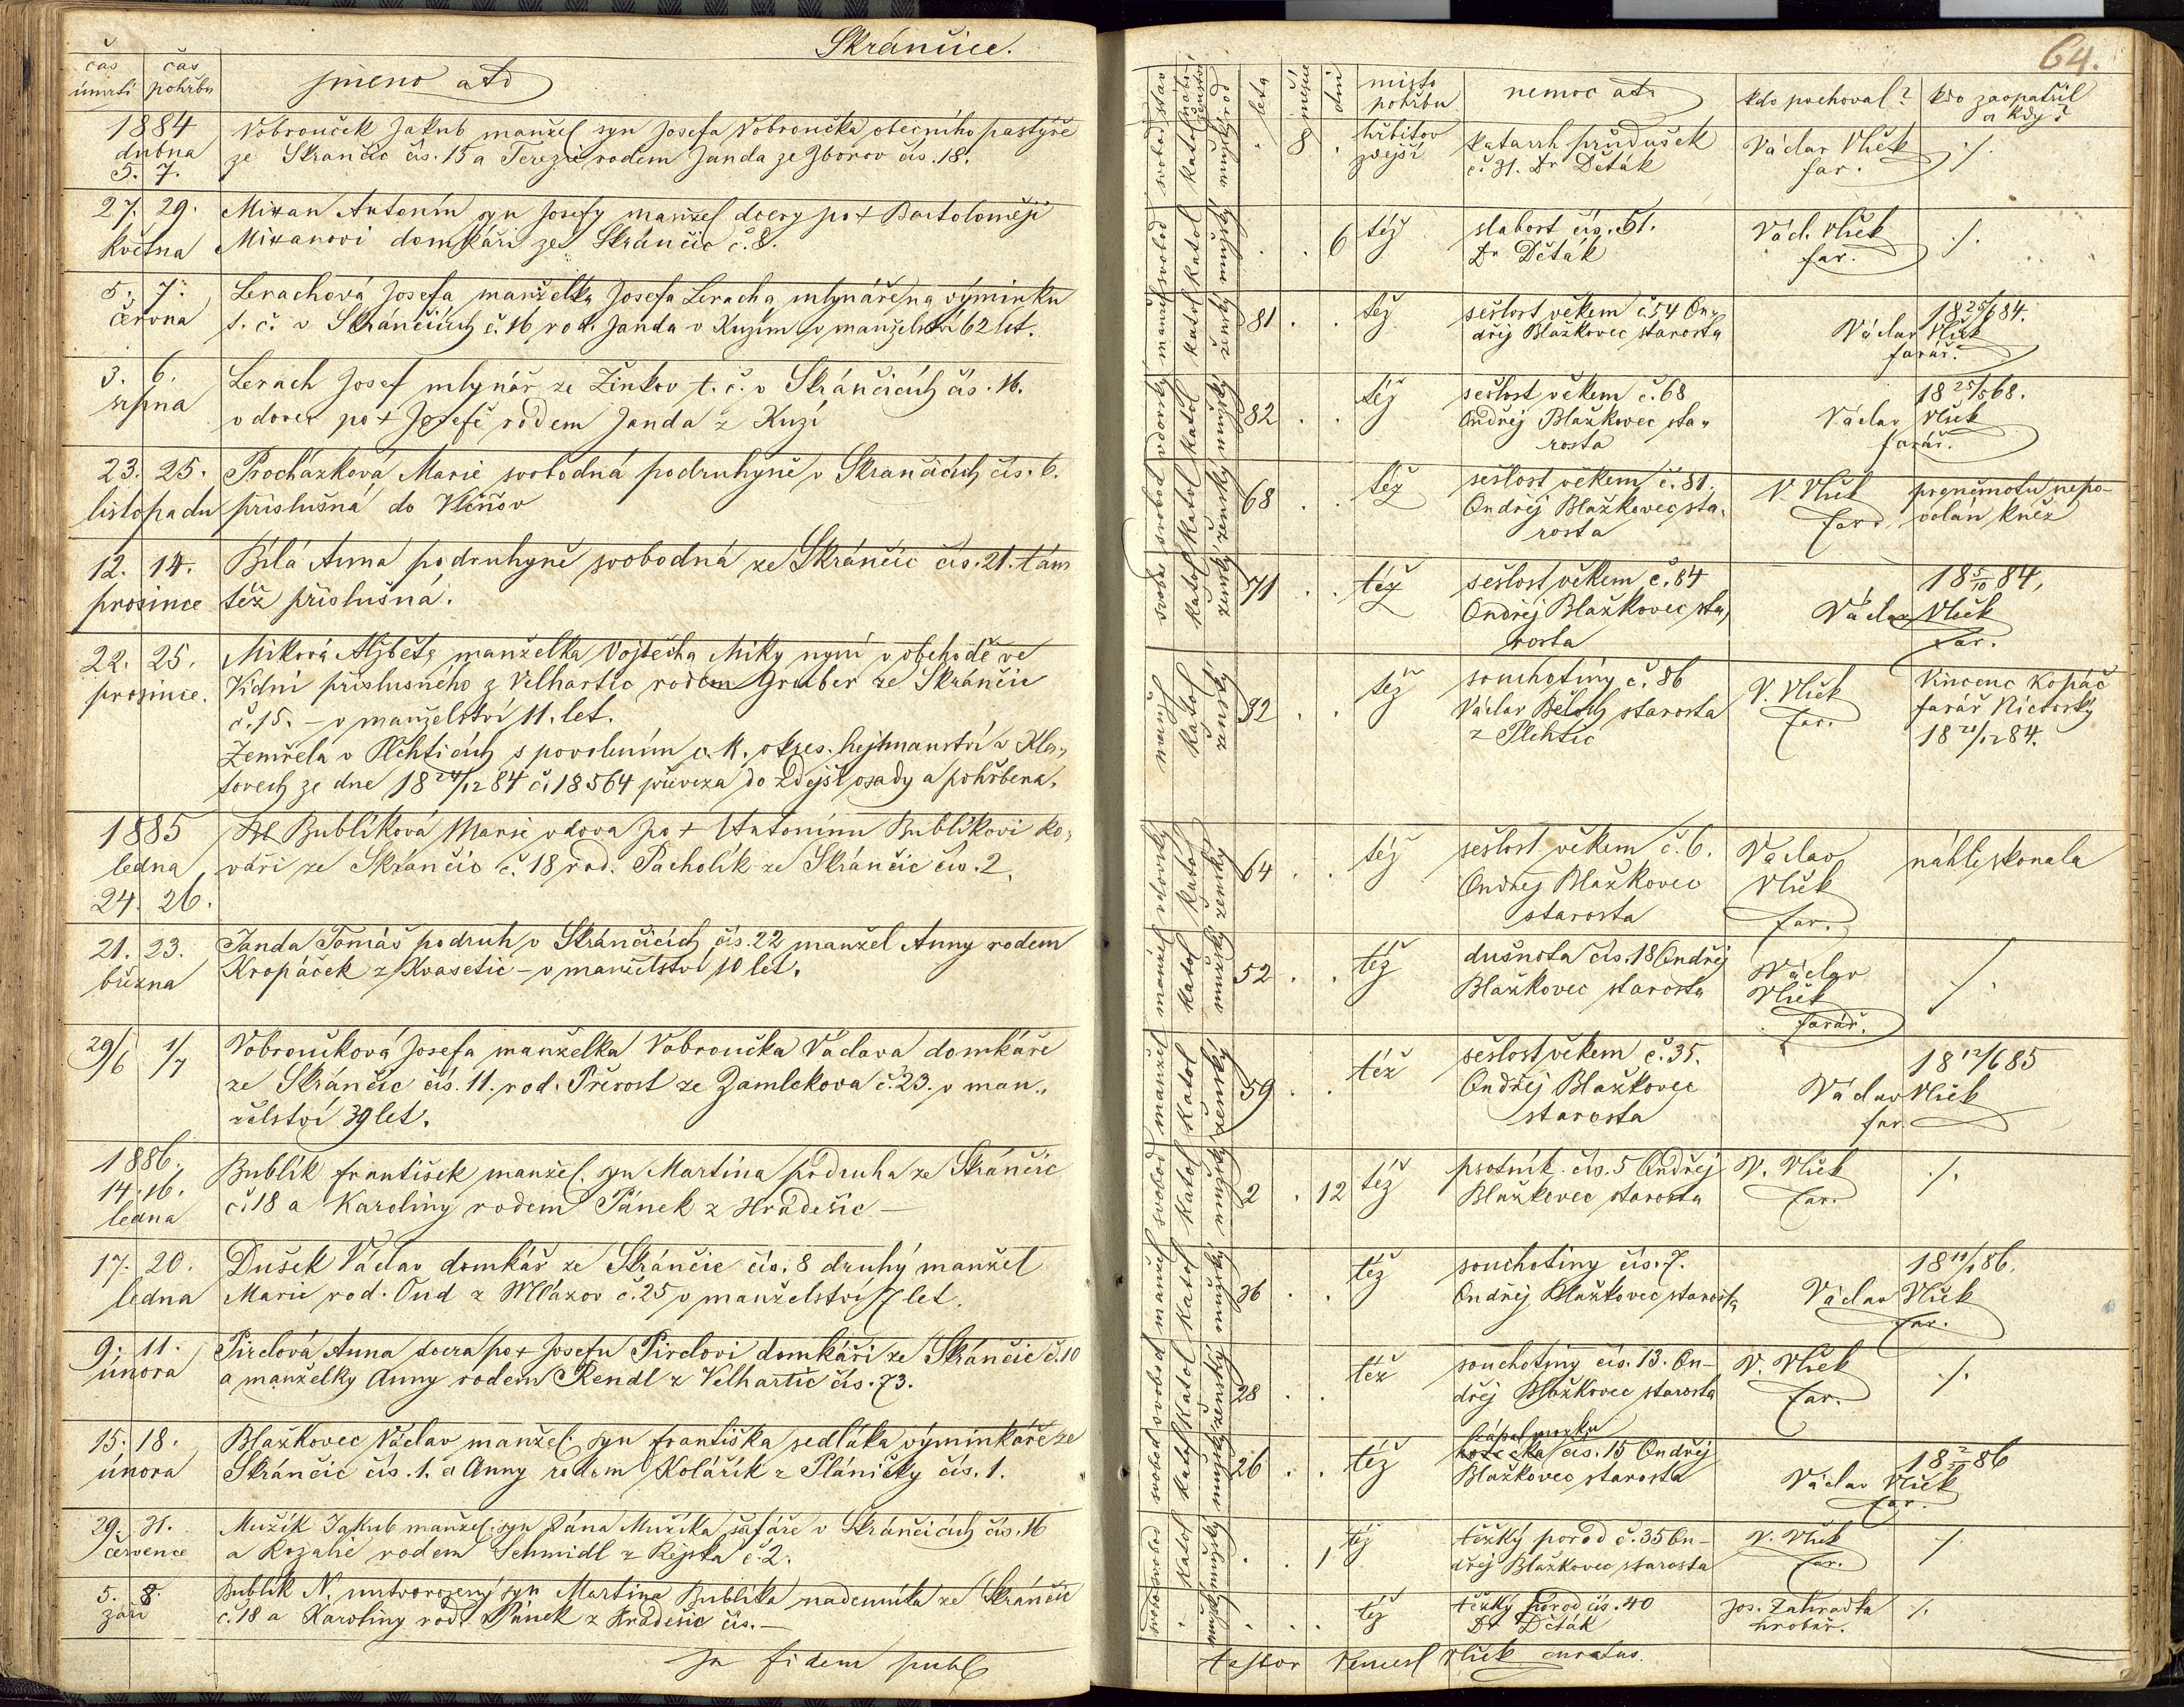 Skránčice.
čas úmrtí
čas pohřbu
jméno atd
1884
dubna
5. 7.
Vobrouček Jakub manžel syn Josefa Vobroučka obecního pastýře
ze Skránčic čís. 15 a Terezie rodem Janda ze Zborov čís. 18.
27. 29.
května
Mixan Antonín syn Josefy manžel dcery po + Bartoloměji
Mixanovi domkáři ze Skránčic č. 8.
5. 7.
června
Lerachová Josefa manželka Josefa Leracha mlynáře na výminku
t. č. v Skránčicích č. 16 rod. Janda v Kuzím v manželství 62 let.
3. 6.
srpna
Lerach Josef mlynář ze Žinkov t. č. v Skránčicích čís. 16.
vdovec po + Josefě rodem Janda z Kuzí
23. 25.
listopadu
Procházková Marie svobodná podruhyně v Skrančicích čís. 6.
příslušná do Vlčňov
12. 14.
prosince
Bílá Anna podruhyně svobodná ze Skránčic čís. 21. tám
též příslušná.
22. 25.
prosince.
Miková Alžběta manželka Vojtěcha Miky nyní v obchodě ve
Vídni příslušného z Velhartic rodem Gruber ze Skránčic
č. 15. – v manželství 11. let.
Zemřela v Plchticích s povolením c. k. okres. hejtmanství v Kla-
tovech ze dne 18 24/12 84 č. 18564 převeza do zdejší osady a pohřbena.
1885
ledna
24. 26.
Bublíková Marie vdova po + Antonínu Bublíkovi ko-
váři ze Skránčic č. 18 rod. Pacholík ze Skránčic čís. 2.
21. 23.
března
Janda Tomáš podruh v Skránčicích čís. 22 manžel Anny rodem
Kropáček z Kvasetic – v manželství 10 let.
29/6 1/7
Vobroučková Josefa manželka Vobroučka Václava domkáře
ze Skránčic čís. 11. rod. Přerost ze Zamlekova č. 23. v man-
želství 39 let.
1886.
14. 16.
ledna
Bublík František manžel. syn Martina podruha ze Skránčic
č. 18 a Karoliny rodem Pánek z Hradešic –
17. 20.
ledna
Dušek Václav domkář ze Skránčic čís. 8 druhý manžel
Marie rod. Oud z Mlázov č. 25 v manželství 7 let.
9. 11.
února
Pirclová Anna dcera po + Josefu Pirclovi domkáři ze Skránčic č. 10
a manželky Anny rodem Rendl z Velhartic čís. 73.
15. 18.
února
Blažkovec Václav manžel. syn Františka sedláka výminkáře ze
Skránčic čís. 1. a Anny rodem Kolářík z Pláničky čís. 1.
29. 31.
července
Mužík Jakub manžel. syn Jána Mužíka šafáře v Skránčicích čís. 16
a Rozalie rodem Schmidl z č. 2.
5. 8.
září
Bublík N. mrtvorozený syn Martina Bublíka nadeníka ze Skránčic
č. 18 a Karoliny rod. Pánek z Hradešic čís. –
In fidem publ
64.
stav
náboženství
rod
léta
měsíce
dní
místo pohřbu
nemoc atd
kdo pochoval?
kdo zaopatřil a kdy?
svobod katol mužský . 8 . hřbitov zdejší
katarrh průdušek
č. 31. Dr Děták
Václav Vlček
far.
./.
svobod katol mužský . . 6 též
slabost čís. 51.
Dr Děták
Václ. Vlček
far.
./.
manžel katol ženský 81 . . též
sešlost věkem č. 54 On-
dřej Blažkovec starosta
18 25/5 84.
Václav Vlček
farář.
vdovský katol mužský 82 . . též
sešlost věkem č. 68
Ondřej Blažkovec sta-
rosta
18 25/5 68.
Václav Vlček
farář.
svobod katol ženský 68 . . též
sešlost věkem č. 81.
Ondřej Blažkovec sta-
rosta
V. Vlček
far.
pro němotu nepo-
volán kněz
svobod katol ženský 71 . . též
sešlost věkem č. 84
Ondřej Blažkovec sta-
rosta
18 5/10 84.
Václav Vlček
far.
manžel katol ženský 32 . . též
souchotiny č. 86
Václav Běloch starosta
z Plchtic
V. Vlček
far.
Vincenc Kopáč
farář Níčovský
18 20/12 84.
vdovský katol ženský 64 . . též
sešlost věkem č. 6.
Ondřej Blažkovec
starosta
Václav
Vlček
far.
náhle skonala
manžel katol mužský 52 . . též
dušnota čís. 18 Ondřej
Blažkovec starosta
Václav
Vlček
farář.
/.
manžel katol ženský 59 . . též
sešlost věkem č. 35.
Ondřej Blažkovec
starosta
18 12/6 85
Václav Vlček
far.
svobod katol mužský 2 . 12 též
psotník čís. 5 Ondřej
Blažkovec starosta
V. Vlček
far.
./.
manžel katol mužský 36 . . též
souchotiny čís. 7.
Ondřej Blažkovec starosta
18 11/1 86.
Václav Vlček
far.
svobod katol ženský 28 . . též
souchotiny čís. 13. On-
dřej Blažkovec starosta
V. Vlček
far.
./.
svobod katol mužský 26 . . též
zápal mozku
čís. 15 Ondřej
Blažkovec starosta
18 2/2 86
Václav Vlček
far.
svobod katol mužský . . 1 též
těžký porod č. 35 On-
dřej Blažkovec starosta
V. Vlček
far.
./.
svobod . mužský . . . též
těžký porod čís. 40
Dr Děták
Jos. Zahradka
hrobař.
./.
testor Vencesl Vlček curatus.